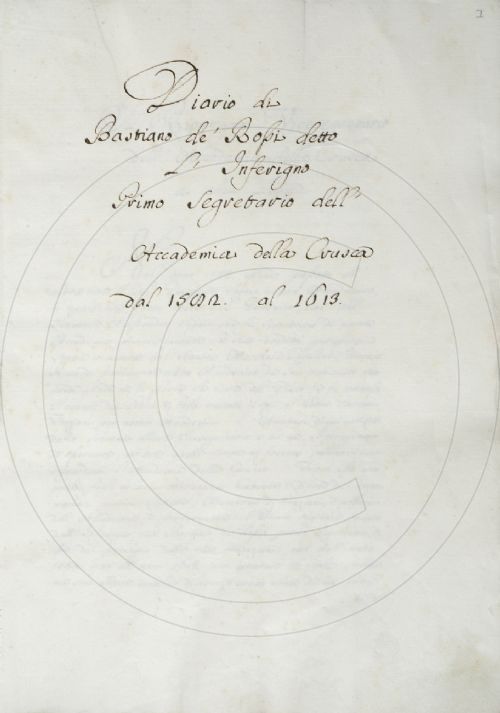 Diario di
Bastiano de' Roſsi detto
L' Inferigno
Primo Segretario dell'
Accademia della Crusca
dal 1582. al 1613.